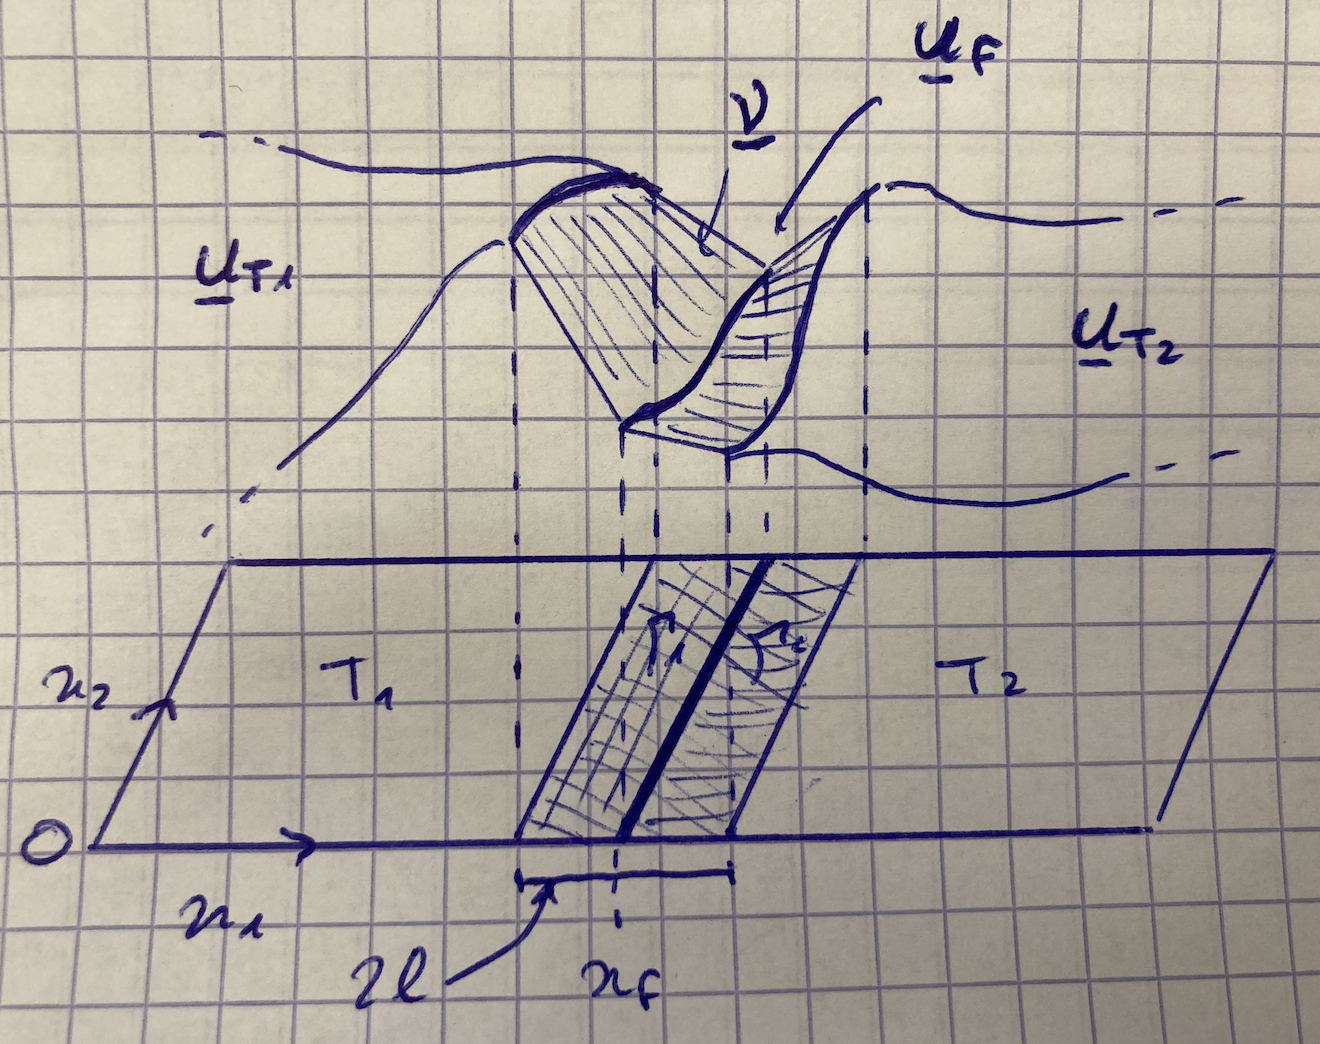 u_F
ν
u_T1
u_T2
x_2
T_1
Γ_1
Γ_2
T_2
O
x_1
2ℓ
x_F